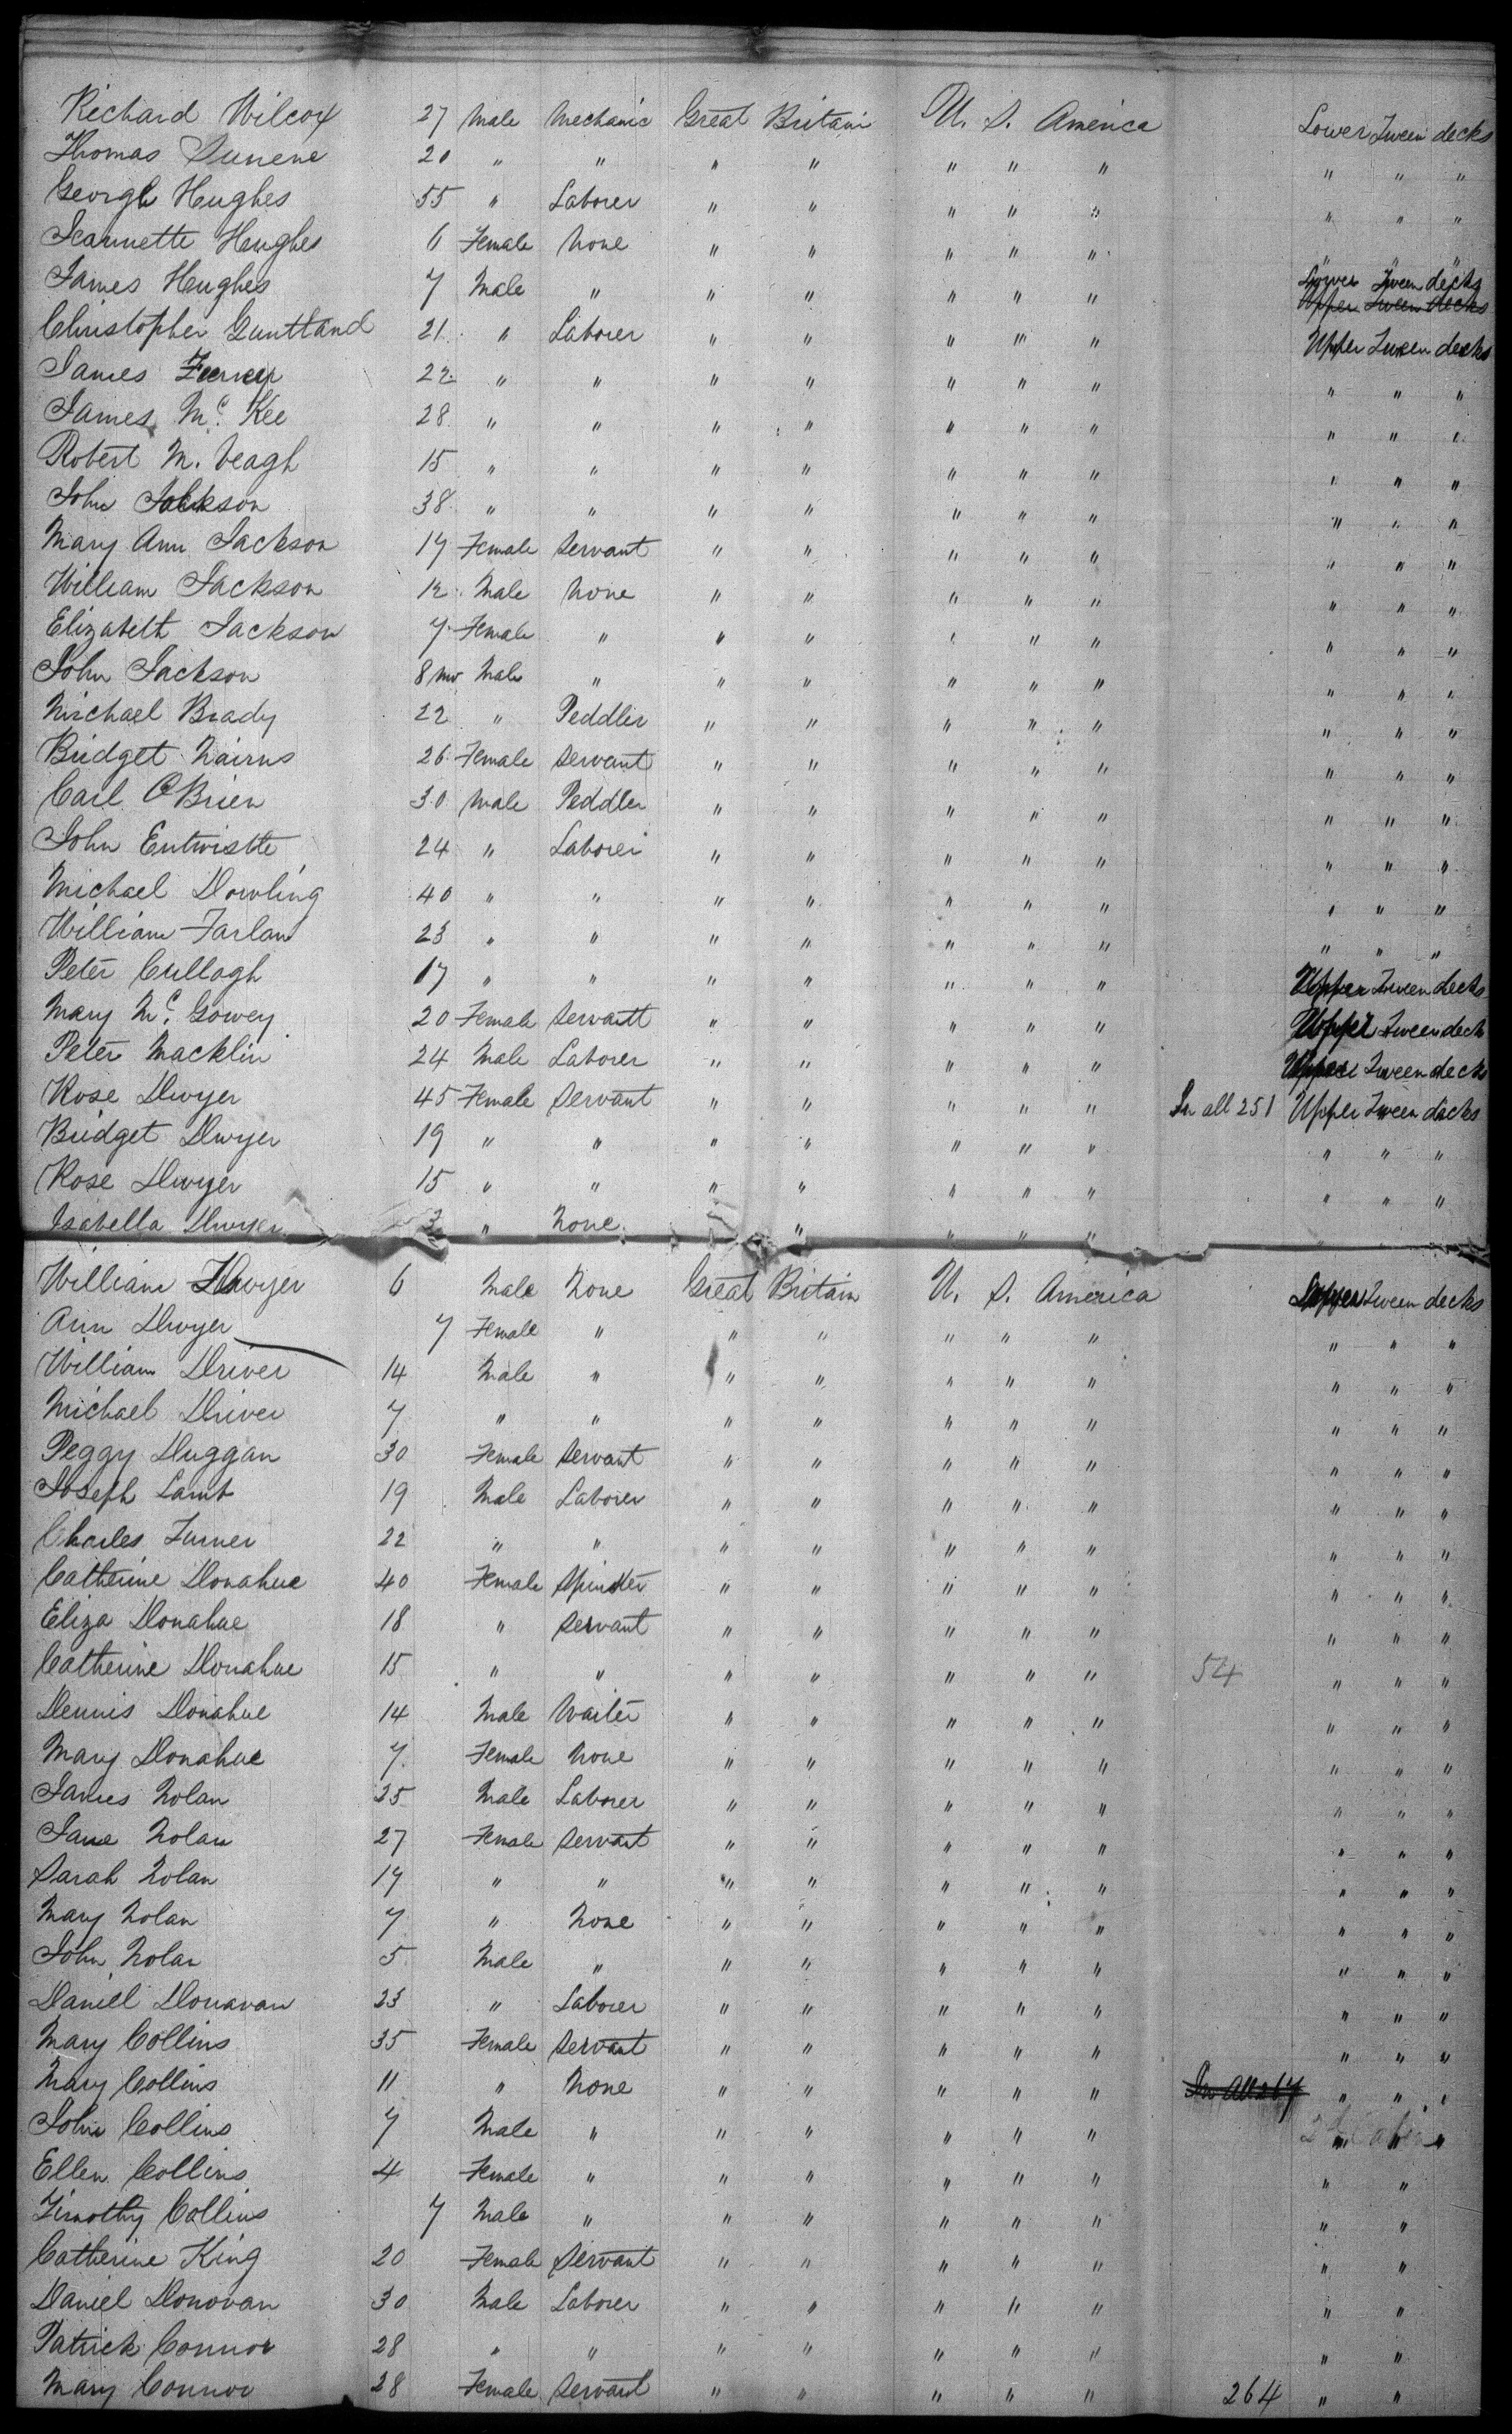 Richard Wilcox 27 Male Mechanic Great Britain U. S. America Lower Tween decks
Thomas 20 " " " " " " " " " "
George Hughes 55 " Laborer " " " " " " " "
Jeannette Hughes 6 Female None " " " " " " " "
James Hughes 7 Male " " " " " " Lower Tween decks
Upper Tween decks
Christopher Guntland 21 " Laborer " " " " " Upper Tween decks
James 22 " " " " " " " " " "
James Mc. Kee 28 " " " " " " " " " "
Robert M. Veagh 15 " " " " " " " " " "
John Jackson 38 " " " " " " " " " "
Mary Ann Jackson 17 Female Servant " " " " " " " "
William Jackson 12 Male None " " " " " " " "
Elizabeth Jackson 7 Female " " " " " " " " "
John Jackson 8 mo Male " " " " " " " " "
Michael Brady 22 " Peddler " " " " " " " "
Bridget Nairns 26 Female Servant " " " " " " " "
Carl O'Brien 30 Male Peddler " " " " " " " "
John Entwistle 24 " Laborer " " " " " " " "
Michael Dowling 40 " " " " " " " " " "
William Farlan 23 " " " " " " " " " "
Peter Cullagh 17 " " " " " " " Upper Tween decks
Mary Mc. Gowey 20 Female Servant " " " " " Upper Tween deck
Peter Macklin 24 Male Laborer " " " " " Upper Tween decks
Rose Dwyer 45 Female Servant " " " " " In all 251 Upper Tween decks
Bridget Dwyer 19 " " " " " " " " " "
Rose Dwyer 15 " " " " " " " " " "
Isabella Dwyer 3 " None " " " " "
William Dwyer 6 Male None Great Britain U. S. America Upper Tween decks
Ann Dwyer 7 Female " " " " " " " " "
William Driver 14 Male " " " " " " " " "
Michael Driver 7 " " " " " " " " " "
Peggy Duggan 30 Female Servant " " " " " " " "
Joseph Lamb 19 Male Laborer " " " " " " " "
Charles Turner 22 " " " " " " " " " "
Catherine Donahue 40 Female Spinster " " " " " " " "
Eliza Donahue 18 " Servant " " " " " " " "
Catherine Donahue 15 " " " " " " " 54 " " "
Dennis Donahue 14 Male Waiter " " " " " " " "
Mary Donahue 7 Female None " " " " " " " "
James Nolan 25 Male Laborer " " " " " " " "
Jane Nolan 27 Female Servant " " " " " " " "
Sarah Nolan 17 " " " " " " " " " "
Mary Nolan 7 " None " " " " " " " "
John Nolan 5 Male " " " " " " " " "
Daniel Donavan 23 " Laborer " " " " " " " "
Mary Collins 35 Female Servant " " " " " " " "
Mary Collins 11 " None " " " " " In all 267 " " "
John Collins 7 Male " " " " " " " " "
Ellen Collins 4 Female " " " " " " " "
Timothy Collins 7 Male " " " " " " " "
Catherine King 20 Female Servant " " " " " " "
Daniel Donovan 30 Male Laborer " " " " " " "
Patrick Connor 28 " " " " " " " " "
Mary Connor 28 Female Servant " " " " " 264 " "